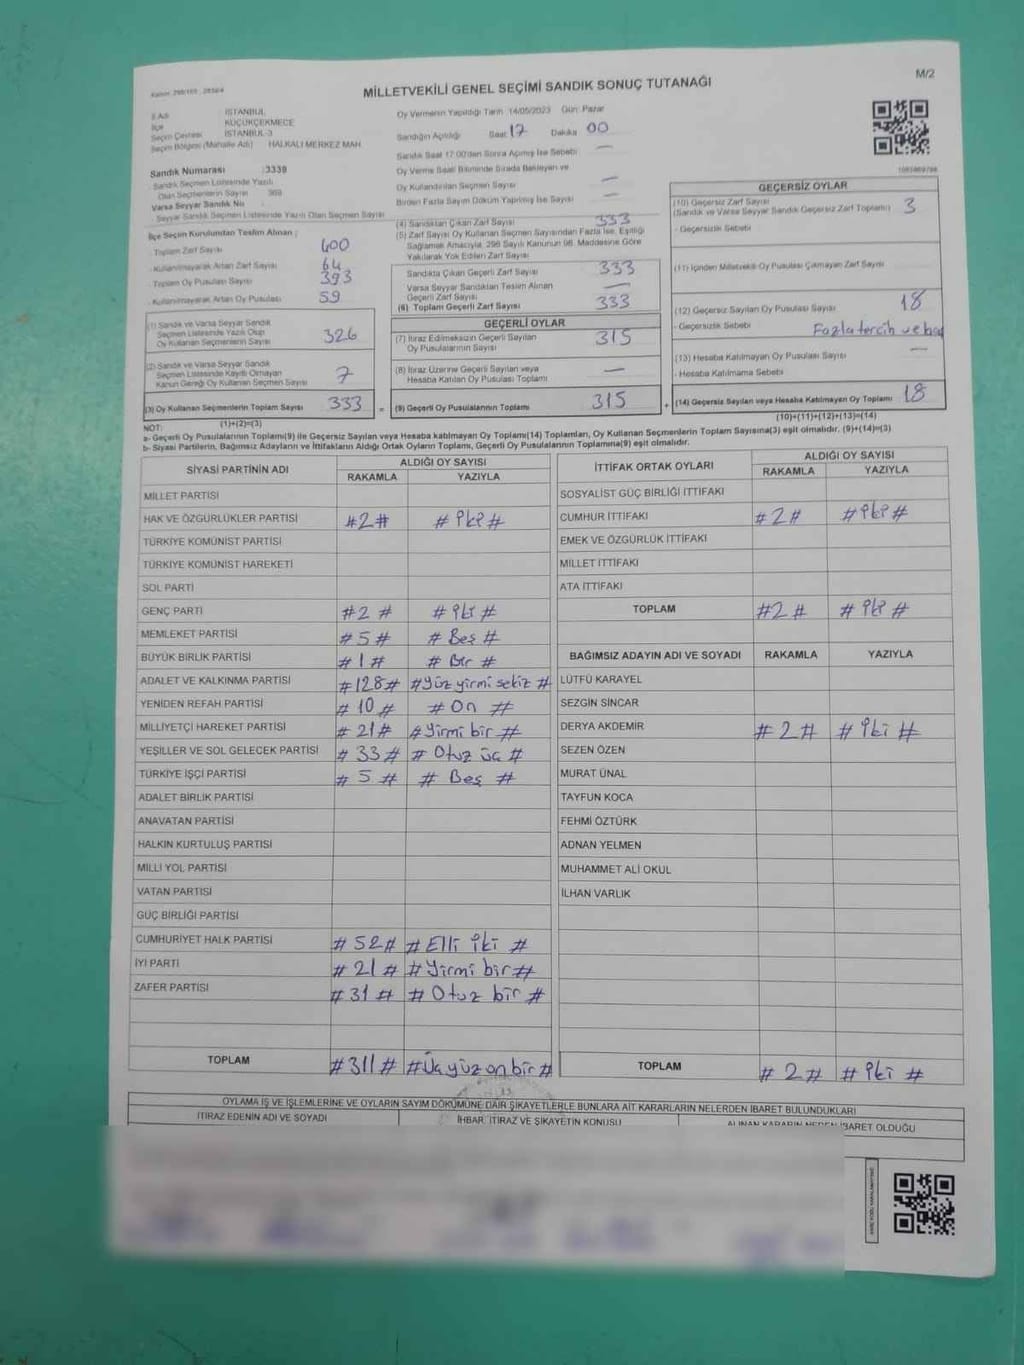 M/2
MİLLETVEKİLİ GENEL SEÇİMİ SANDIK SONUÇ TUTANAĞI
İl Adı İSTANBUL
İlçe KÜÇÜKÇEKMECE
Seçim Çevresi İSTANBUL-3
Seçim Bölgesi (Mahalle Adı) HALKALI MERKEZ MAH
Sandık Numarası :3339
Sandık Seçmen Listesinde Yazılı
Olan Seçmenlerin Sayısı
Varsa Seyyar Sandık No
Seyyar Sandık Seçmen Listesinde Yazılı Olan Seçmen Sayısı
İlçe Seçim Kurulundan Teslim Alınan ;
Toplam Zarf Sayısı 400
Kullanılmayarak Artan Zarf Sayısı 64
Toplam Oy Pusulası Sayısı 393
Kullanılmayarak Artan Oy Pusulası 59
(1) Sandık ve Varsa Seyyar Sandık
Seçmen Listesinde Yazılı Olup
Oy Kullanan Seçmenlerin Sayısı 326
(2) Sandık ve Varsa Seyyar Sandık
Seçmen Listesinde Kayıtlı Olmayan
Kanun Gereği Oy Kullanan Seçmen Sayısı 7
(3) Oy Kullanan Seçmenlerin Toplam Sayısı 333
(1)+(2)=(3)
Oy Vermenin Yapıldığı Tarih 14/05/2023 Gün: Pazar
Sandığın Açıldığı Saat 17 Dakika 00
Sandık Saat 17:00'den Sonra Açılmış İse Sebebi —
Oy Verme Saati Bitiminde Sırada Bekleyen ve
Oy Kullandırılan Seçmen Sayısı —
Birden Fazla Sayım Döküm Yapılmış İse Sayısı —
(4) Sandıktan Çıkan Zarf Sayısı 333
(5) Zarf Sayısı Oy Kullanan Seçmen Sayısından Fazla İse, Eşitliği
Sağlamak Amacıyla, 298 Sayılı Kanunun 98. Maddesine Göre
Yakılarak Yok Edilen Zarf Sayısı
Sandıkta Çıkan Geçerli Zarf Sayısı 333
Varsa Seyyar Sandıktan Teslim Alınan
Geçerli Zarf Sayısı —
(6) Toplam Geçerli Zarf Sayısı 333
GEÇERLİ OYLAR
(7) İtiraz Edilmeksizin Geçerli Sayılan
Oy Pusulalarının Sayısı 315
(8) İtiraz Üzerine Geçerli Sayılan veya
Hesaba Katılan Oy Pusulası Toplamı —
= (9) Geçerli Oy Pusulalarının Toplamı 315 +
GEÇERSİZ OYLAR
(10) Geçersiz Zarf Sayısı
(Sandık ve Varsa Seyyar Sandık Geçersiz Zarf Toplamı) 3
- Geçersizlik Sebebi
(11) İçinden Milletvekili Oy Pusulası Çıkmayan Zarf Sayısı
(12) Geçersiz Sayılan Oy Pusulası Sayısı 18
- Geçersizlik Sebebi Fazla tercih ve
(13) Hesaba Katılmayan Oy Pusulası Sayısı —
- Hesaba Katılmama Sebebi
(14) Geçersiz Sayılan veya Hesaba Katılmayan Oy Toplamı 18
(10)+(11)+(12)+(13)=(14)
NOT:
a- Geçerli Oy Pusulalarının Toplamı(9) ile Geçersiz Sayılan veya Hesaba katılmayan Oy Toplamı(14) Toplamları, Oy Kullanan Seçmenlerin Toplam Sayısına(3) eşit olmalıdır. (9)+(14)=(3)
b- Siyasi Partilerin, Bağımsız Adayların ve İttifakların Aldığı Ortak Oyların Toplamı, Geçerli Oy Pusulalarının Toplamına(9) eşit olmalıdır.
SİYASİ PARTİNİN ADI ALDIĞI OY SAYISI
RAKAMLA YAZIYLA
MİLLET PARTİSİ
HAK VE ÖZGÜRLÜKLER PARTİSİ #2# #İki#
TÜRKİYE KOMÜNİST PARTİSİ
TÜRKİYE KOMÜNİST HAREKETİ
SOL PARTİ
GENÇ PARTİ #2# #İki#
MEMLEKET PARTİSİ #5# #Beş#
BÜYÜK BİRLİK PARTİSİ #1# #Bir#
ADALET VE KALKINMA PARTİSİ #128# #Yüz yirmi sekiz#
YENİDEN REFAH PARTİSİ #10# #On#
MİLLİYETÇİ HAREKET PARTİSİ #21# #Yirmi bir#
YEŞİLLER VE SOL GELECEK PARTİSİ #33# #Otuz üç#
TÜRKİYE İŞÇİ PARTİSİ #5# #Beş#
ADALET BİRLİK PARTİSİ
ANAVATAN PARTİSİ
HALKIN KURTULUŞ PARTİSİ
MİLLİ YOL PARTİSİ
VATAN PARTİSİ
GÜÇ BİRLİĞİ PARTİSİ
CUMHURİYET HALK PARTİSİ #52# #Elli iki#
İYİ PARTİ #21# #Yirmi bir#
ZAFER PARTİSİ #31# #Otuz bir#
TOPLAM #311# #Üç yüz on bir#
İTTİFAK ORTAK OYLARI ALDIĞI OY SAYISI
RAKAMLA YAZIYLA
SOSYALİST GÜÇ BİRLİĞİ İTTİFAKI
CUMHUR İTTİFAKI #2# #İki#
EMEK VE ÖZGÜRLÜK İTTİFAKI
MİLLET İTTİFAKI
ATA İTTİFAKI
TOPLAM #2# #İki#
BAĞIMSIZ ADAYIN ADI VE SOYADI RAKAMLA YAZIYLA
LÜTFÜ KARAYEL
SEZGİN SİNCAR
DERYA AKDEMİR #2# #İki#
SEZEN ÖZEN
MURAT ÜNAL
TAYFUN KOCA
FEHMİ ÖZTÜRK
ADNAN YELMEN
MUHAMMET ALİ OKUL
İLHAN VARLIK
TOPLAM #2# #İki#
OYLAMA İŞ VE İŞLEMLERİNE VE OYLARIN SAYIM DÖKÜMÜNE DAİR ŞİKAYETLERLE BUNLARA AİT KARARLARIN NELERDEN İBARET BULUNDUKLARI
İTİRAZ EDENİN ADI VE SOYADI İHBAR, İTİRAZ VE ŞİKAYETİN KONUSU ALINAN KARARIN NEDEN İBARET OLDUĞU